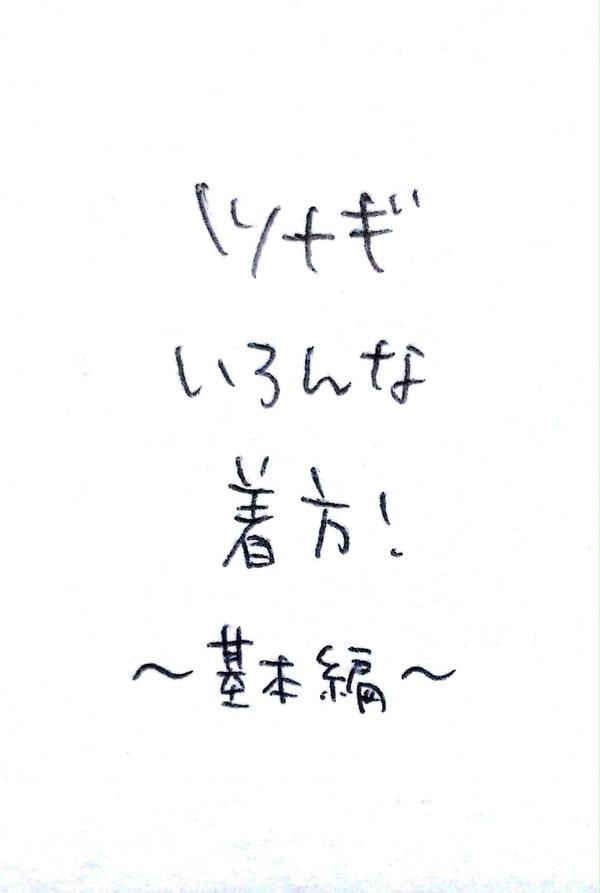 ツナギ
いろんな
着方!
～基本編～